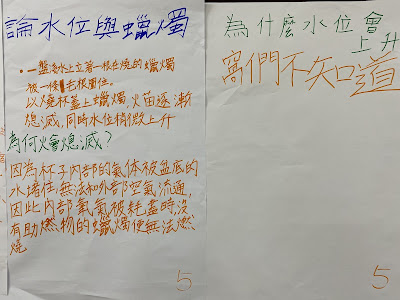 論水位與蠟燭
•一盤為水上立著一根燃燒的蠟燭
被一條毛根圍住。
以燒杯蓋上蠟燭,火苗逐漸
熄滅,同時水位稍微上升
為何火會熄滅?
因為杯子內部的氣体被盆底的
水堵住無法和外部空氣流通,
因此內部氧氣被耗盡時,沒
有助燃物的蠟燭便無法燃
燒
5
為什麼水位會
上升
窩們不知道
5